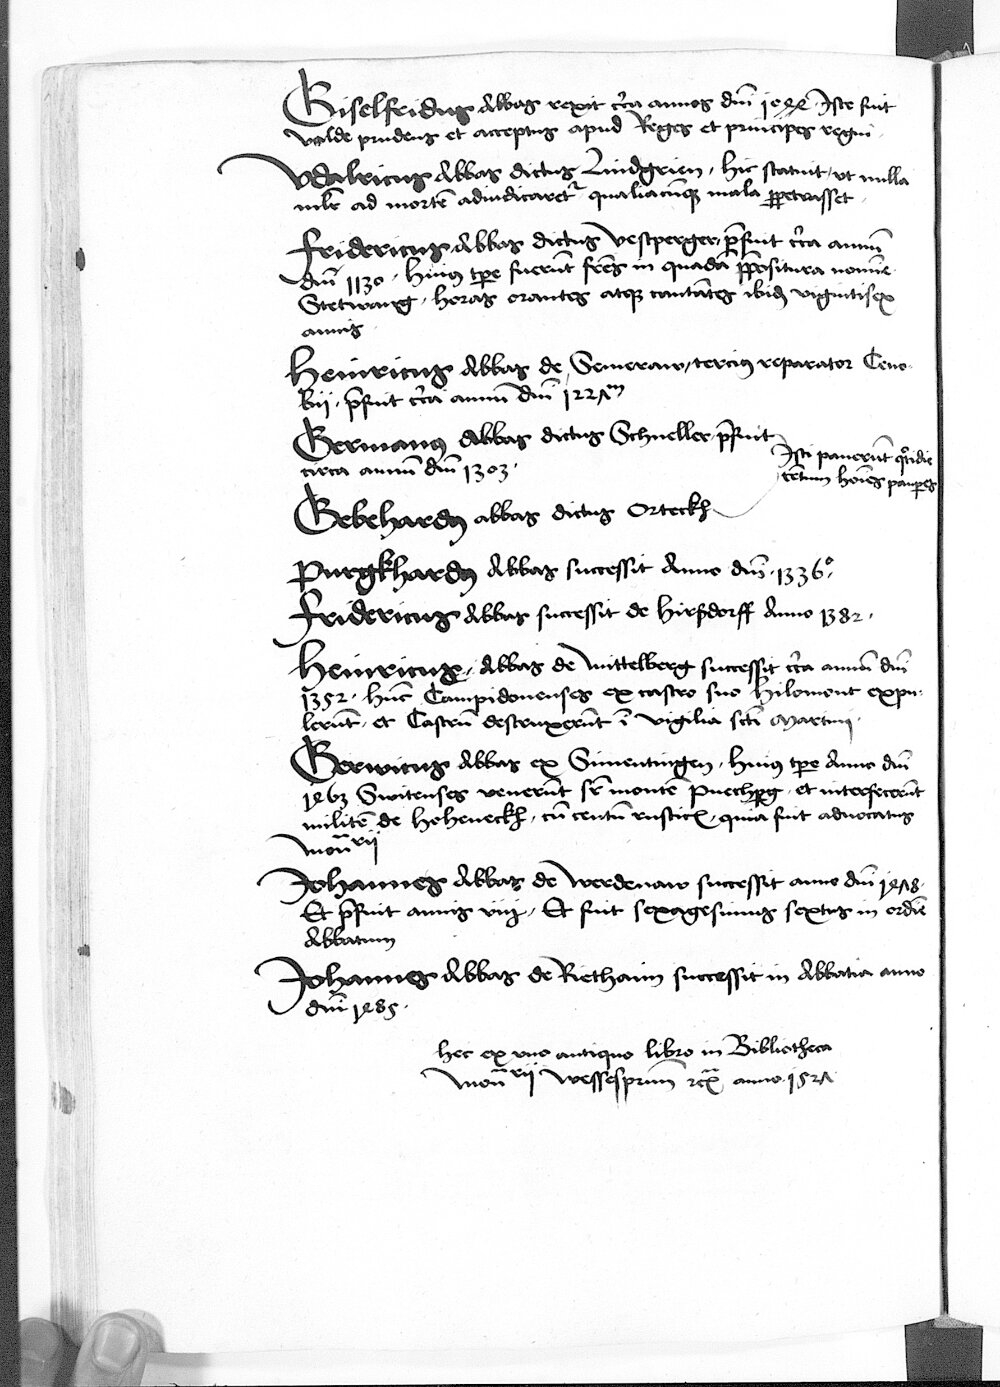 Giselfridus Abbas rexit c̄ca annos dnī 1044. Iste fuit
valde prudens et acceptus apud Reges et principes regni.
Vdalricus Abbas dictus Lindgrien. hic statuit, vt nulla
mlr̄ ad mortē adiudicaret᷑ qualiacūq mala ꝑpetrasset.
Fridericus Abbas dictus Vestperger, p̄fuit c̄ca annū
dnī 1130. Huiꝰ tꝑe fuerūt fr̄es in quadā p̄positura nomīe
Stetwang. horas orantes atqꝫ cantātes ibidꝫ vigintisex
annis
Heinricus Abbas de Semeraw, terciꝰ reparator Ceno-
bii. p̄fuit c̄ca annū dnī 1227ᵐ
Germanꝰ Abbas dictus Schneller, p̄fuit
circa annū dnī 1303.
Isti pauerūt qͦtidie
centum hoīes pauꝑes
Gebehardꝰ abbas dictus Orteckh
Purgkhardꝰ Abbas successit Anno dnī. 1336º.
Fridericus Abbas successit de Hirsdorff Anno 1382.
Heinricus, Abbas de Mittelberg successit c̄ca annū dnī
1352. Hūc Campidonenses ex castro suo Hilomont expu-
lerūt, et Castrū destruxerūt ī vigilia sctī Martini.
Gerwicus Abbas ex Simentingen. Huiꝰ tꝑe Anno dnī
1463 Switenses venerūt sr̄ montē Puechꝑg. et interfecerūt
militē de Hoheneckh, cū centū rusticꝭ, quia fuit aduocatus
Monr̄ii
Johannes Abbas de Werdenaw successit anno dnī 1478.
Et p̄fuit annis viij. Et fuit sexagesimus sextus in ordīe
Abbatum
Johannes Abbas de Riethaim successit in Abbatia anno
dnī 1485.
Hec ex vno antiquo libro in Bibliotheca
Monr̄ii Wessesprun̄ anno 1527